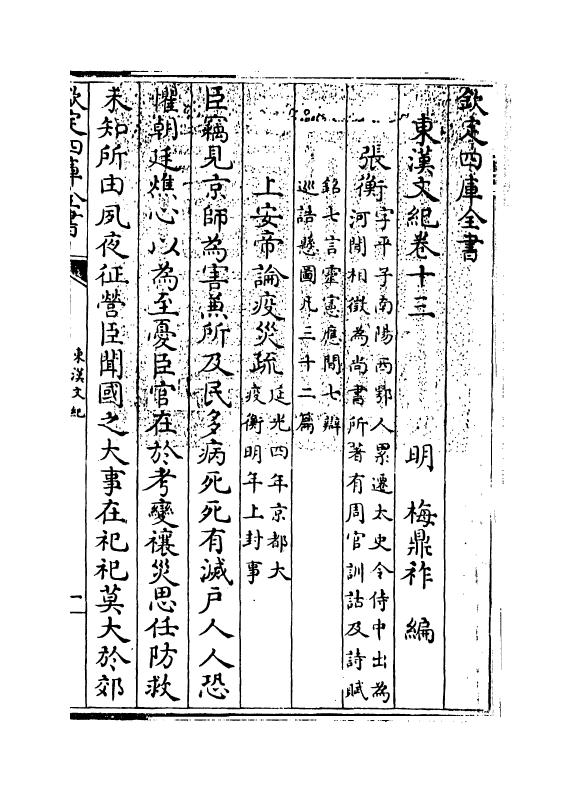 欽定四庫全書
東漢文紀卷十三
明 梅鼎祚 編
張衡字平子南陽西鄂人累遷太史令侍中出為
河間相徵為尚書所著有周官訓詁及詩賦
銘七言靈憲應間七辯
巡誥懸圖凡三十二篇
上安帝論疫災疏延光四年京都大
疫衡明年上封事
臣竊見京師為害兼所及民多病死死有滅戶人人恐
懼朝廷燋心以為至憂臣官在於考變禳災思任防救
未知所由夙夜征營臣聞國之大事在祀祀莫大於郊
欽定四庫全書
東漢文紀
一